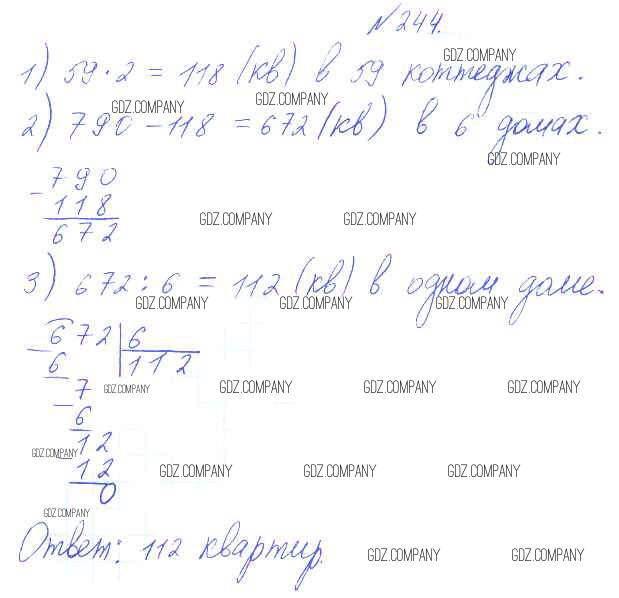 №244.
GDZ.COMPANY
1) 59·2 = 118 (кв) в 59 коттеджах.
GDZ.COMPANY GDZ.COMPANY
2) 790 – 118 = 672 (кв) в 6 домах.
GDZ.COMPANY
– 790
118 GDZ.COMPANY GDZ.COMPANY
672
3) 672 : 6 = 112 (кв) в одном доме.
GDZ.COMPANY GDZ.COMPANY GDZ.COMPANY
– 672 | 6
6 | 112
– 7 GDZ.COMPANY GDZ.COMPANY GDZ.COMPANY GDZ.COMPANY
6
12
GDZ.COMPANY
– 12 GDZ.COMPANY GDZ.COMPANY GDZ.COMPANY
0
GDZ.COMPANY
Ответ: 112 квартир. GDZ.COMPANY GDZ.COMPANY